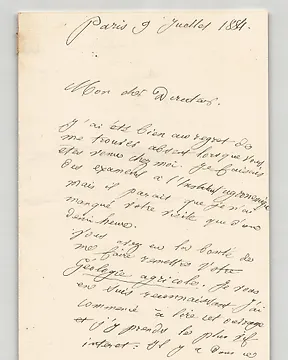 Paris 9 Juillet 1884.
Mon cher Directeur,
J'ai été bien au regret de
me trouver absent lorsque vous
êtes venu chez moi. Je faisais
des examens à l'Institut agronomique
mais il paraît que je n'ai
manqué votre visite que d'une
demi heure.
Vous avez eu la bonté de
me faire remettre votre
Géologie agricole. Je vous
en suis reconnaissant j'ai
commencé à lire cet ouvrage
et j'y prends le plus vif
intérêt. Il y a